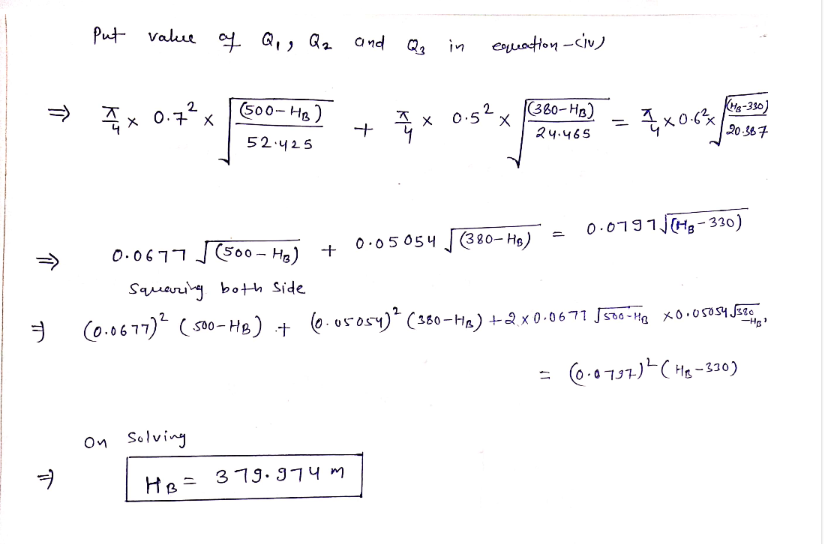 Put value of Q₁, Q₂ and Q₃ in equation –(iv)
⇒ π/4 × 0.7² × √((500–H_B)/52.425) + π/4 × 0.5² × √((380–H_B)/24.465) = π/4 × 0.6² × √((H_B–330)/20.387)
⇒ 0.0677 √(500–H_B) + 0.05054 √(380–H_B) = 0.0797 √(H_B–330)
Squaring both Side
⇒ (0.0677)² (500–H_B) + (0.05054)² (380–H_B) + 2 × 0.0677 √500–H_B × 0.05054 √380–H_B,
= (0.0797)² (H_B–330)
On Solving
⇒ H_B = 379.974 m